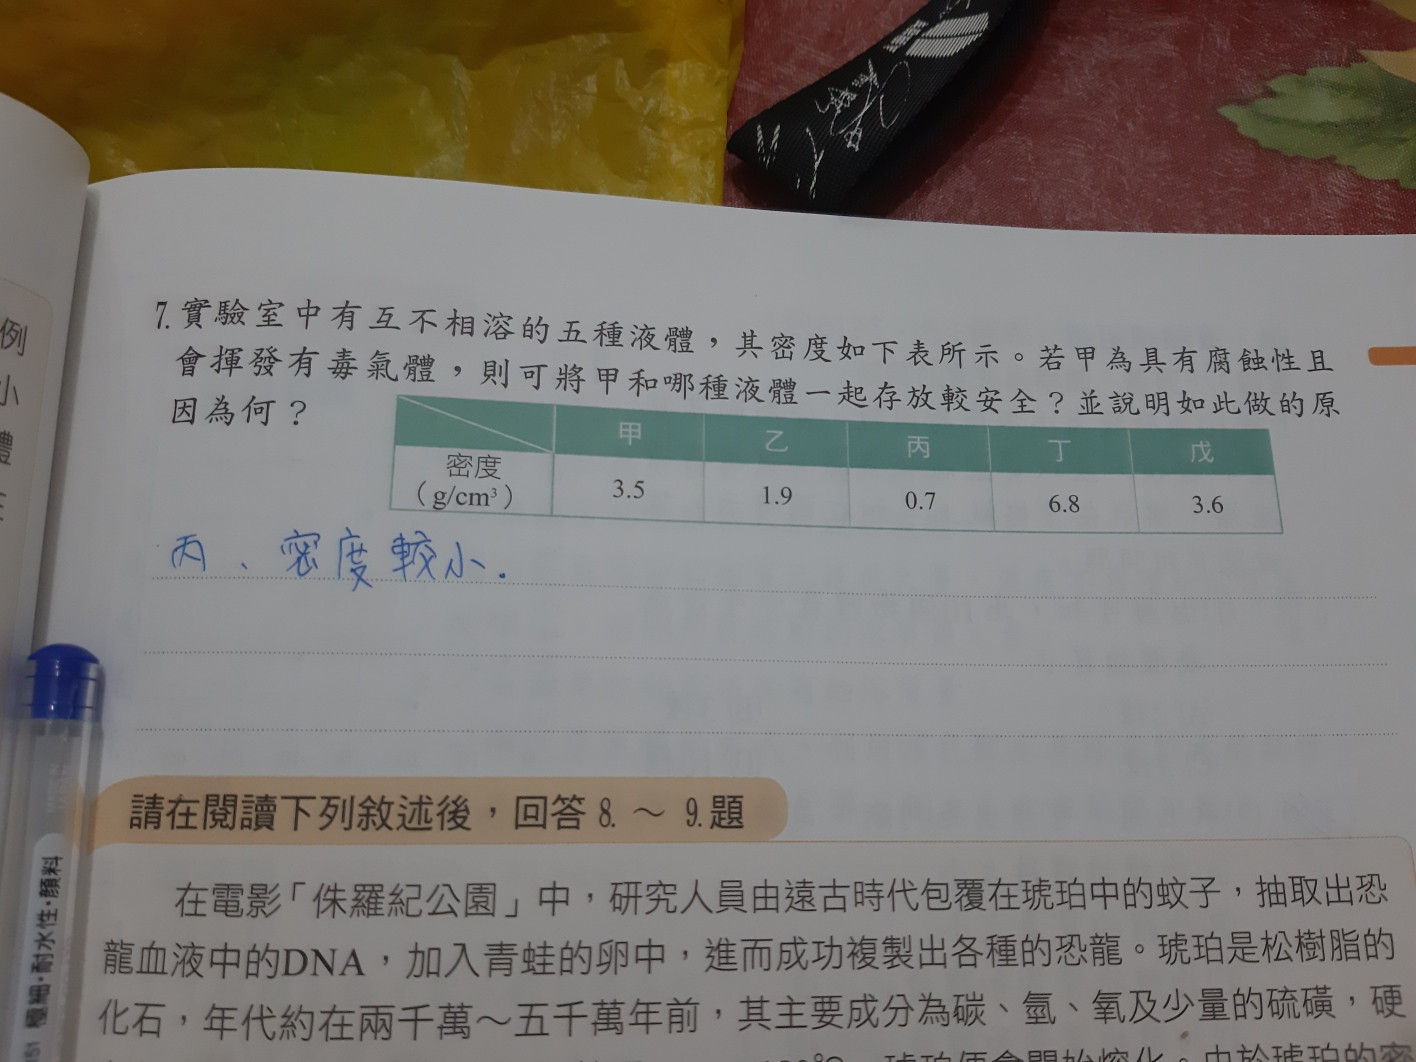 7. 實驗室中有互不相溶的五種液體，其密度如下表所示。若甲為具有腐蝕性且
會揮發有毒氣體，則可將甲和哪種液體一起存放較安全？並說明如此做的原
因為何？
甲 乙 丙 丁 戊
密度
（g/cm³） 3.5 1.9 0.7 6.8 3.6
丙、密度較小.
請在閱讀下列敘述後，回答 8. ～ 9. 題
在電影「侏羅紀公園」中，研究人員由遠古時代包覆在琥珀中的蚊子，抽取出恐
龍血液中的DNA，加入青蛙的卵中，進而成功複製出各種的恐龍。琥珀是松樹脂的
化石，年代約在兩千萬～五千萬年前，其主要成分為碳、氫、氧及少量的硫磺，硬
琥珀便會開始熔化。由於琥珀的密
例
小
體
極細·耐水性·顏料